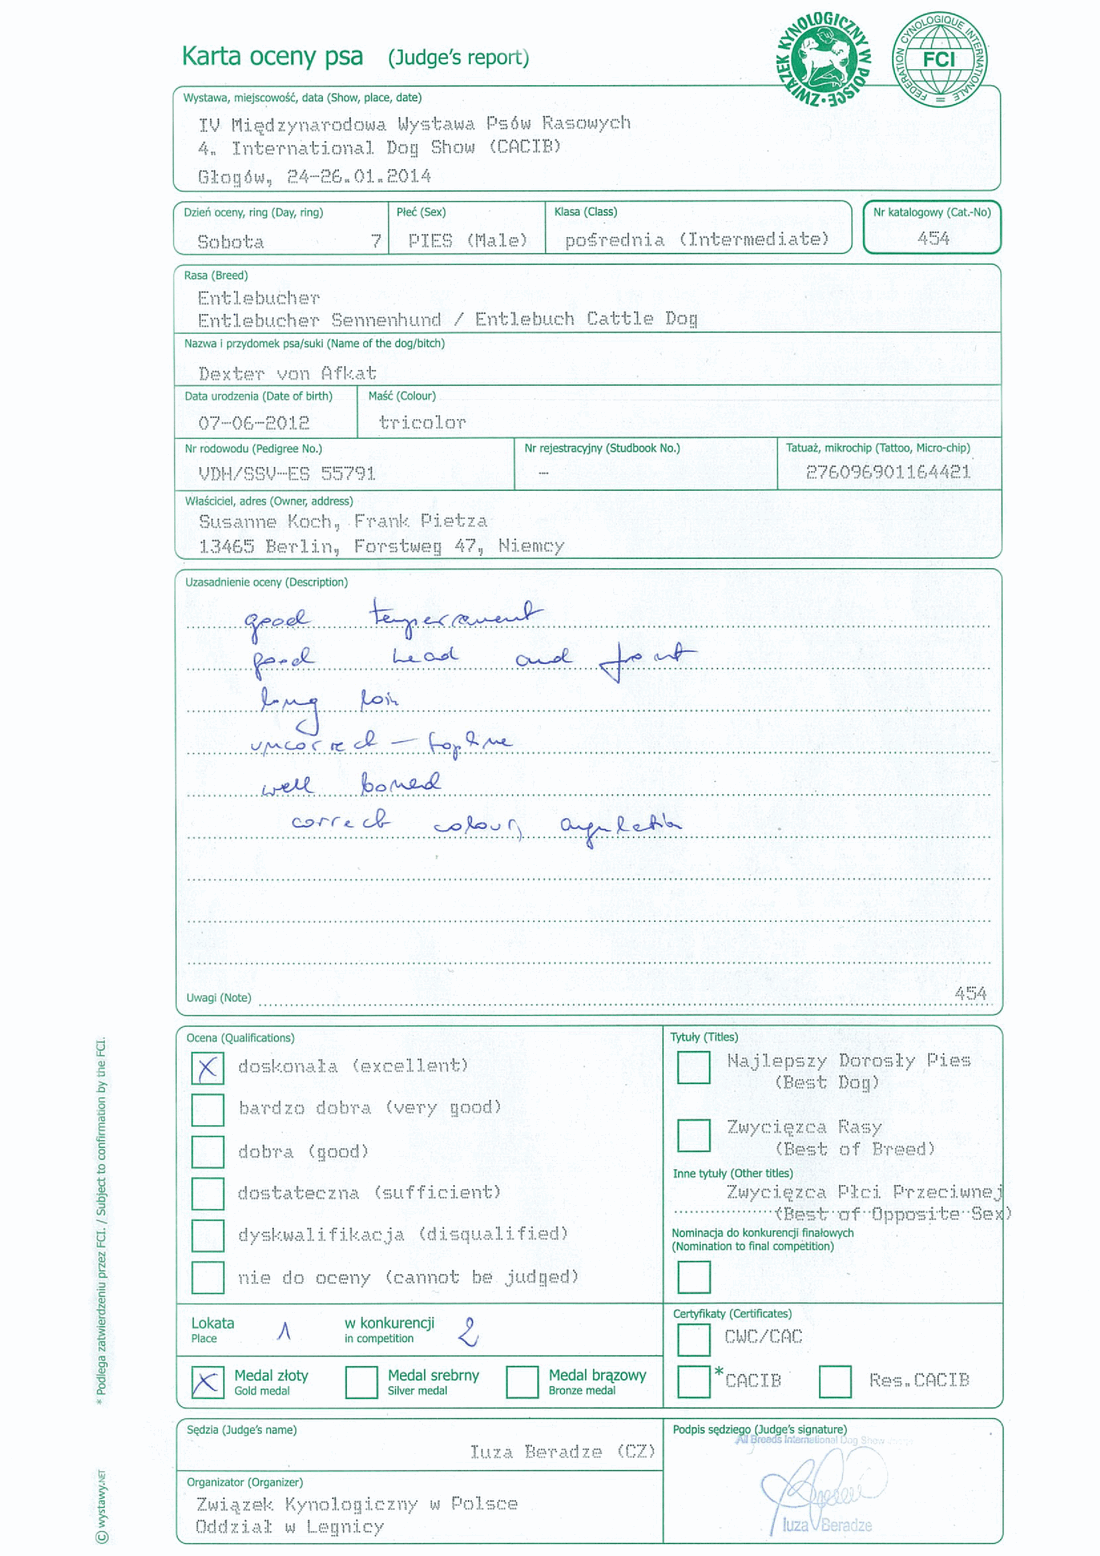 Karta oceny psa (Judge's report)
ZWIĄZEK KYNOLOGICZNY W POLSCE
FEDERATION CYNOLOGIQUE INTERNATIONALE
FCI
Wystawa, miejscowość, data (Show, place, date)
IV Międzynarodowa Wystawa Psów Rasowych
4. International Dog Show (CACIB)
Głogów, 24-26.01.2014
Dzień oceny, ring (Day, ring) Płeć (Sex) Klasa (Class) Nr katalogowy (Cat.-No)
Sobota 7 PIES (Male) pośrednia (Intermediate) 454
Rasa (Breed)
Entlebucher
Entlebucher Sennenhund / Entlebuch Cattle Dog
Nazwa i przydomek psa/suki (Name of the dog/bitch)
Dexter von Afkat
Data urodzenia (Date of birth) Maść (Colour)
07-06-2012 tricolor
Nr rodowodu (Pedigree No.) Nr rejestracyjny (Studbook No.) Tatuaż, mikrochip (Tattoo, Micro-chip)
VDH/SSV-ES 55791 - 276096901164421
Właściciel, adres (Owner, address)
Susanne Koch, Frank Pietza
13465 Berlin, Forstweg 47, Niemcy
Uzasadnienie oceny (Description)
good temperament
good head and front
long loin
uncorrect - topline
well boned
correct colour, angulation
Uwagi (Note) 454
Ocena (Qualifications)
X doskonała (excellent)
bardzo dobra (very good)
dobra (good)
dostateczna (sufficient)
dyskwalifikacja (disqualified)
nie do oceny (cannot be judged)
Tytuły (Titles)
Najlepszy Dorosły Pies
(Best Dog)
Zwycięzca Rasy
(Best of Breed)
Inne tytuły (Other titles)
Zwycięzca Płci Przeciwnej
(Best of Opposite Sex)
Nominacja do konkurencji finałowych
(Nomination to final competition)
Lokata 1 w konkurencji 2
Place in competition
X Medal złoty Medal srebrny Medal brązowy
Gold medal Silver medal Bronze medal
Certyfikaty (Certificates)
CWC/CAC
*CACIB Res.CACIB
Sędzia (Judge's name)
Iuza Beradze (CZ)
Organizator (Organizer)
Związek Kynologiczny w Polsce
Oddział w Legnicy
Podpis sędziego (Judge's signature)
All Breeds International Dog Show
Iuza Beradze
* Podlega zatwierdzeniu przez FCI. / Subject to confirmation by the FCI.
© wystawy.NET